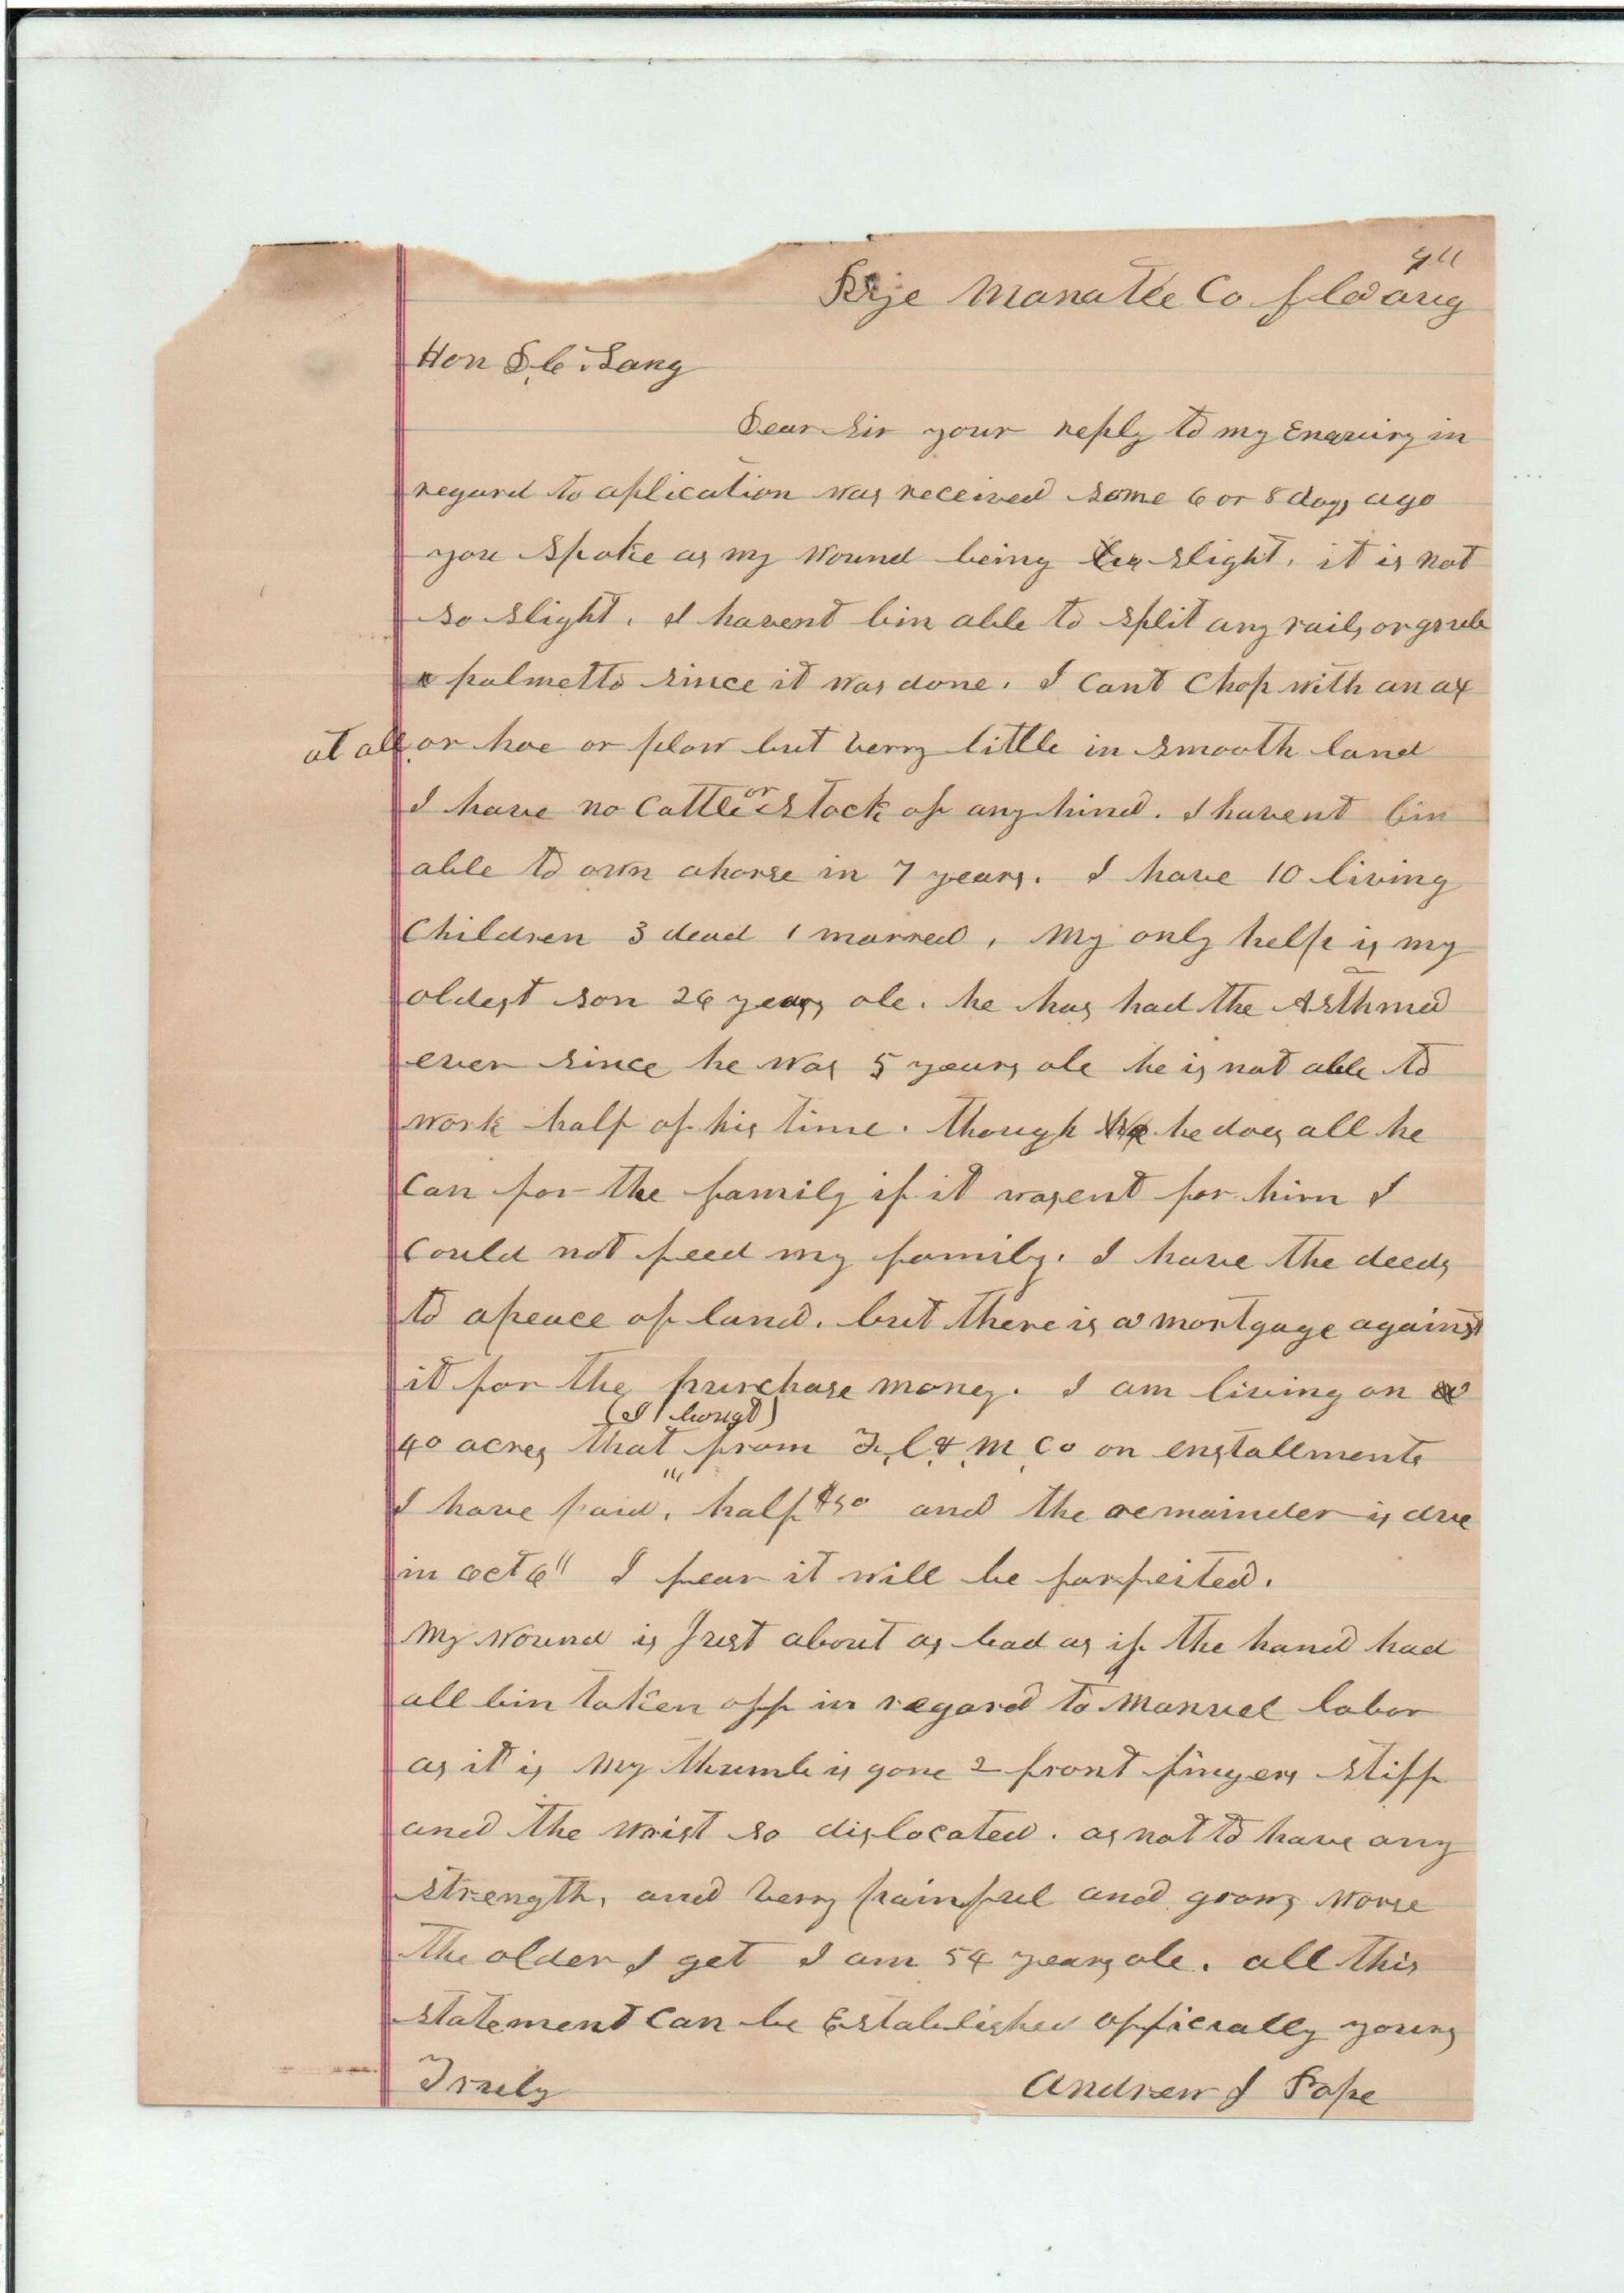 Rye Manatee Co fla aug 9"
Hon D. C. Lang
Dear Sir your reply to my Enquiry in
regard to aplication was received some 6 or 8 days ago
you spoke as my wound being slight. it is not
so slight. I havent bin able to split any rails or grub
palmetto since it was done. I cant chop with an ax
at all or hoe or plow but verry little in smooth land
I have no cattle or stock of any kind. I havent bin
able to own a horse in 7 years. I have 10 living
Children 3 dead 1 marred, My only help is my
oldest son 26 years ole. he has had the Asthma
ever since he was 5 years ole he is not able to
work half of his time. though he does all he
can for the family if it wasent for him I
could not feed my family. I have the deeds
to a peace of land. but there is a mortgage against
it for the purchase money. I am living on
40 acres that (I bougt) from F. C. & M. Co on enstallments
I have paid, half $50 and the remainder is due
in oct 6" I fear it will be forfeited.
My wound is Just about as bad as if the hand had
all bin taken off in regard to Manuel labor
as it is My thumb is gone 2 front fingers stiff
and the wrist so dislocated. as not to have any
strength, and verry painful and grows worse
the older I get I am 54 years ole. all this
statement can be Established officially yours
Truly Andrew J Pope